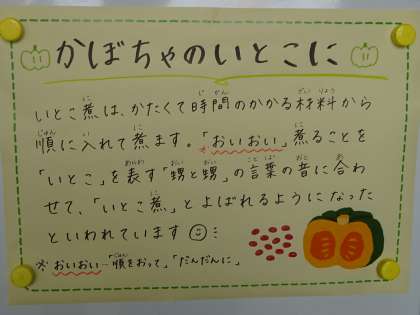 かぼちゃのいとこに
いとこ煮は、かたくて時間のかかる材料から
順に入れて煮ます。「おいおい」煮ることを
「いとこ」を表す「甥と甥」の言葉の音に合わ
せて、「いとこ煮」とよばれるようになった
といわれています
※おいおい…「順をおって」「だんだんに」